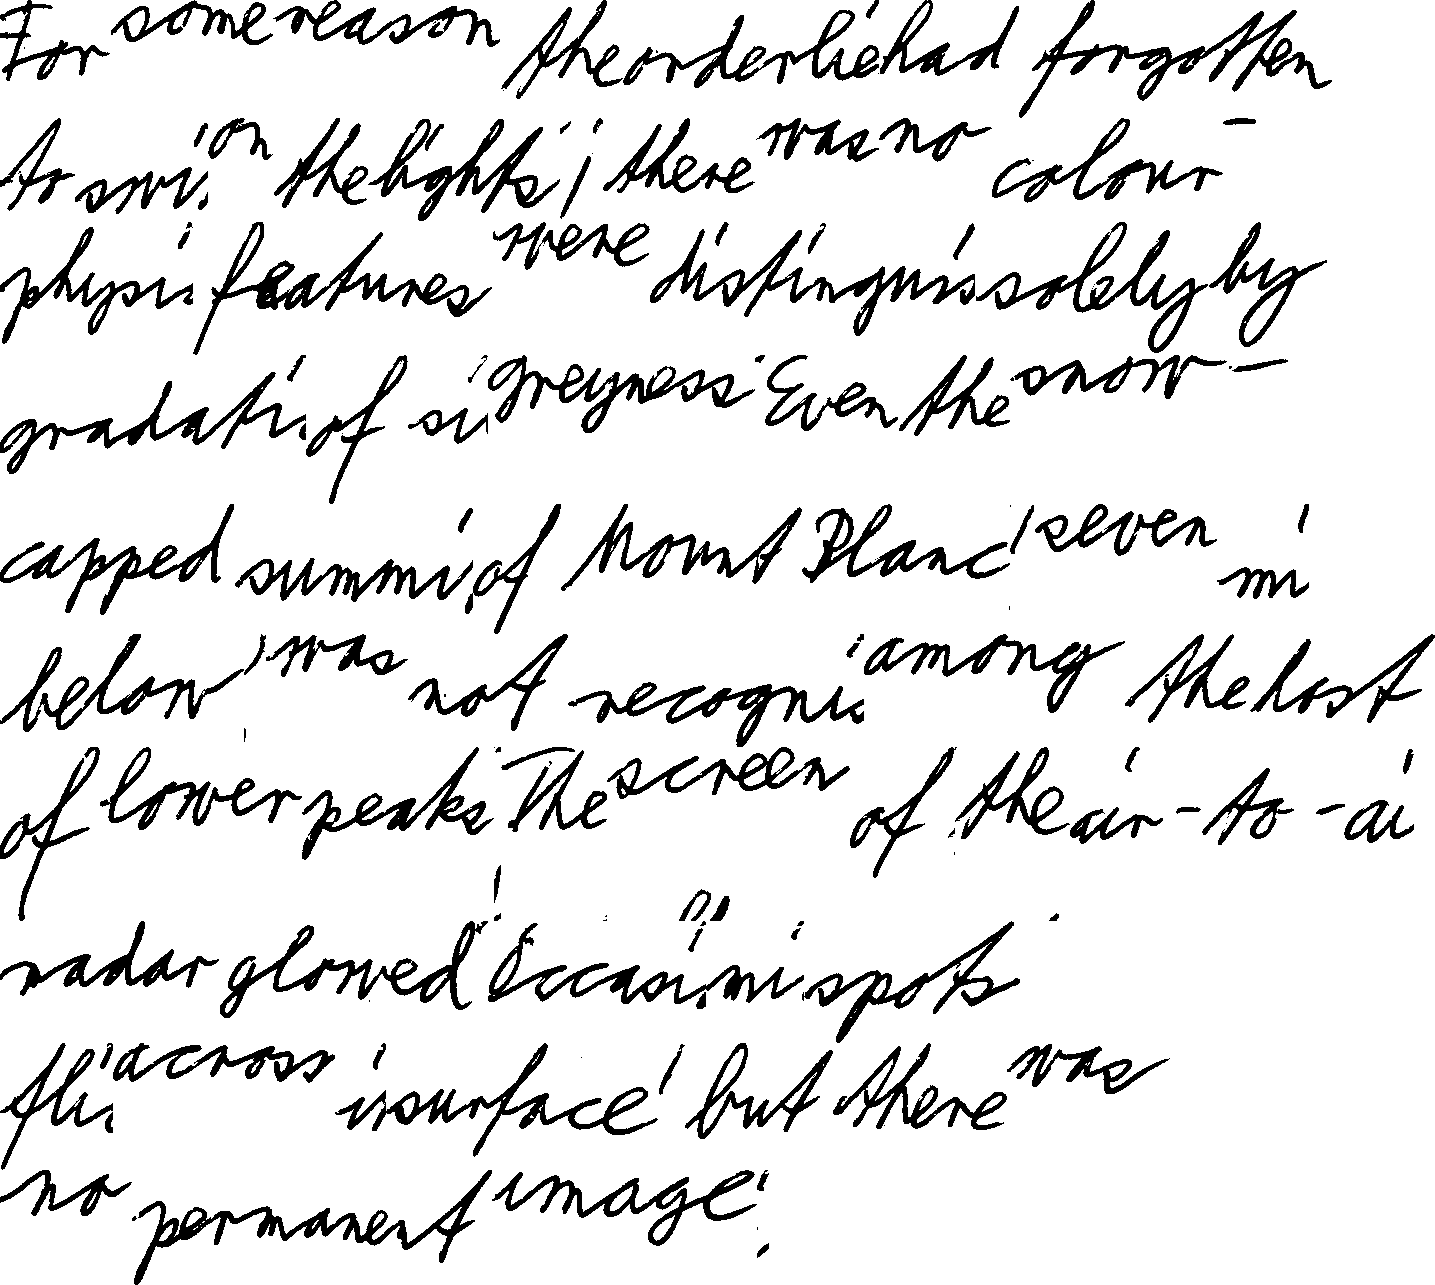 For some reason the orderlie had forgotten
to swi on the lights; there was no colour -
physi features were distinguis solely by
gradati of si greyness. Even the snow -
capped summi of Mount Blanc, seven mi
below, was not recogni among the host
of lower peaks. The screen of the air - to - ai
radar glowed. Occasi mi spots
fli across i surface, but there was
no permanent image.